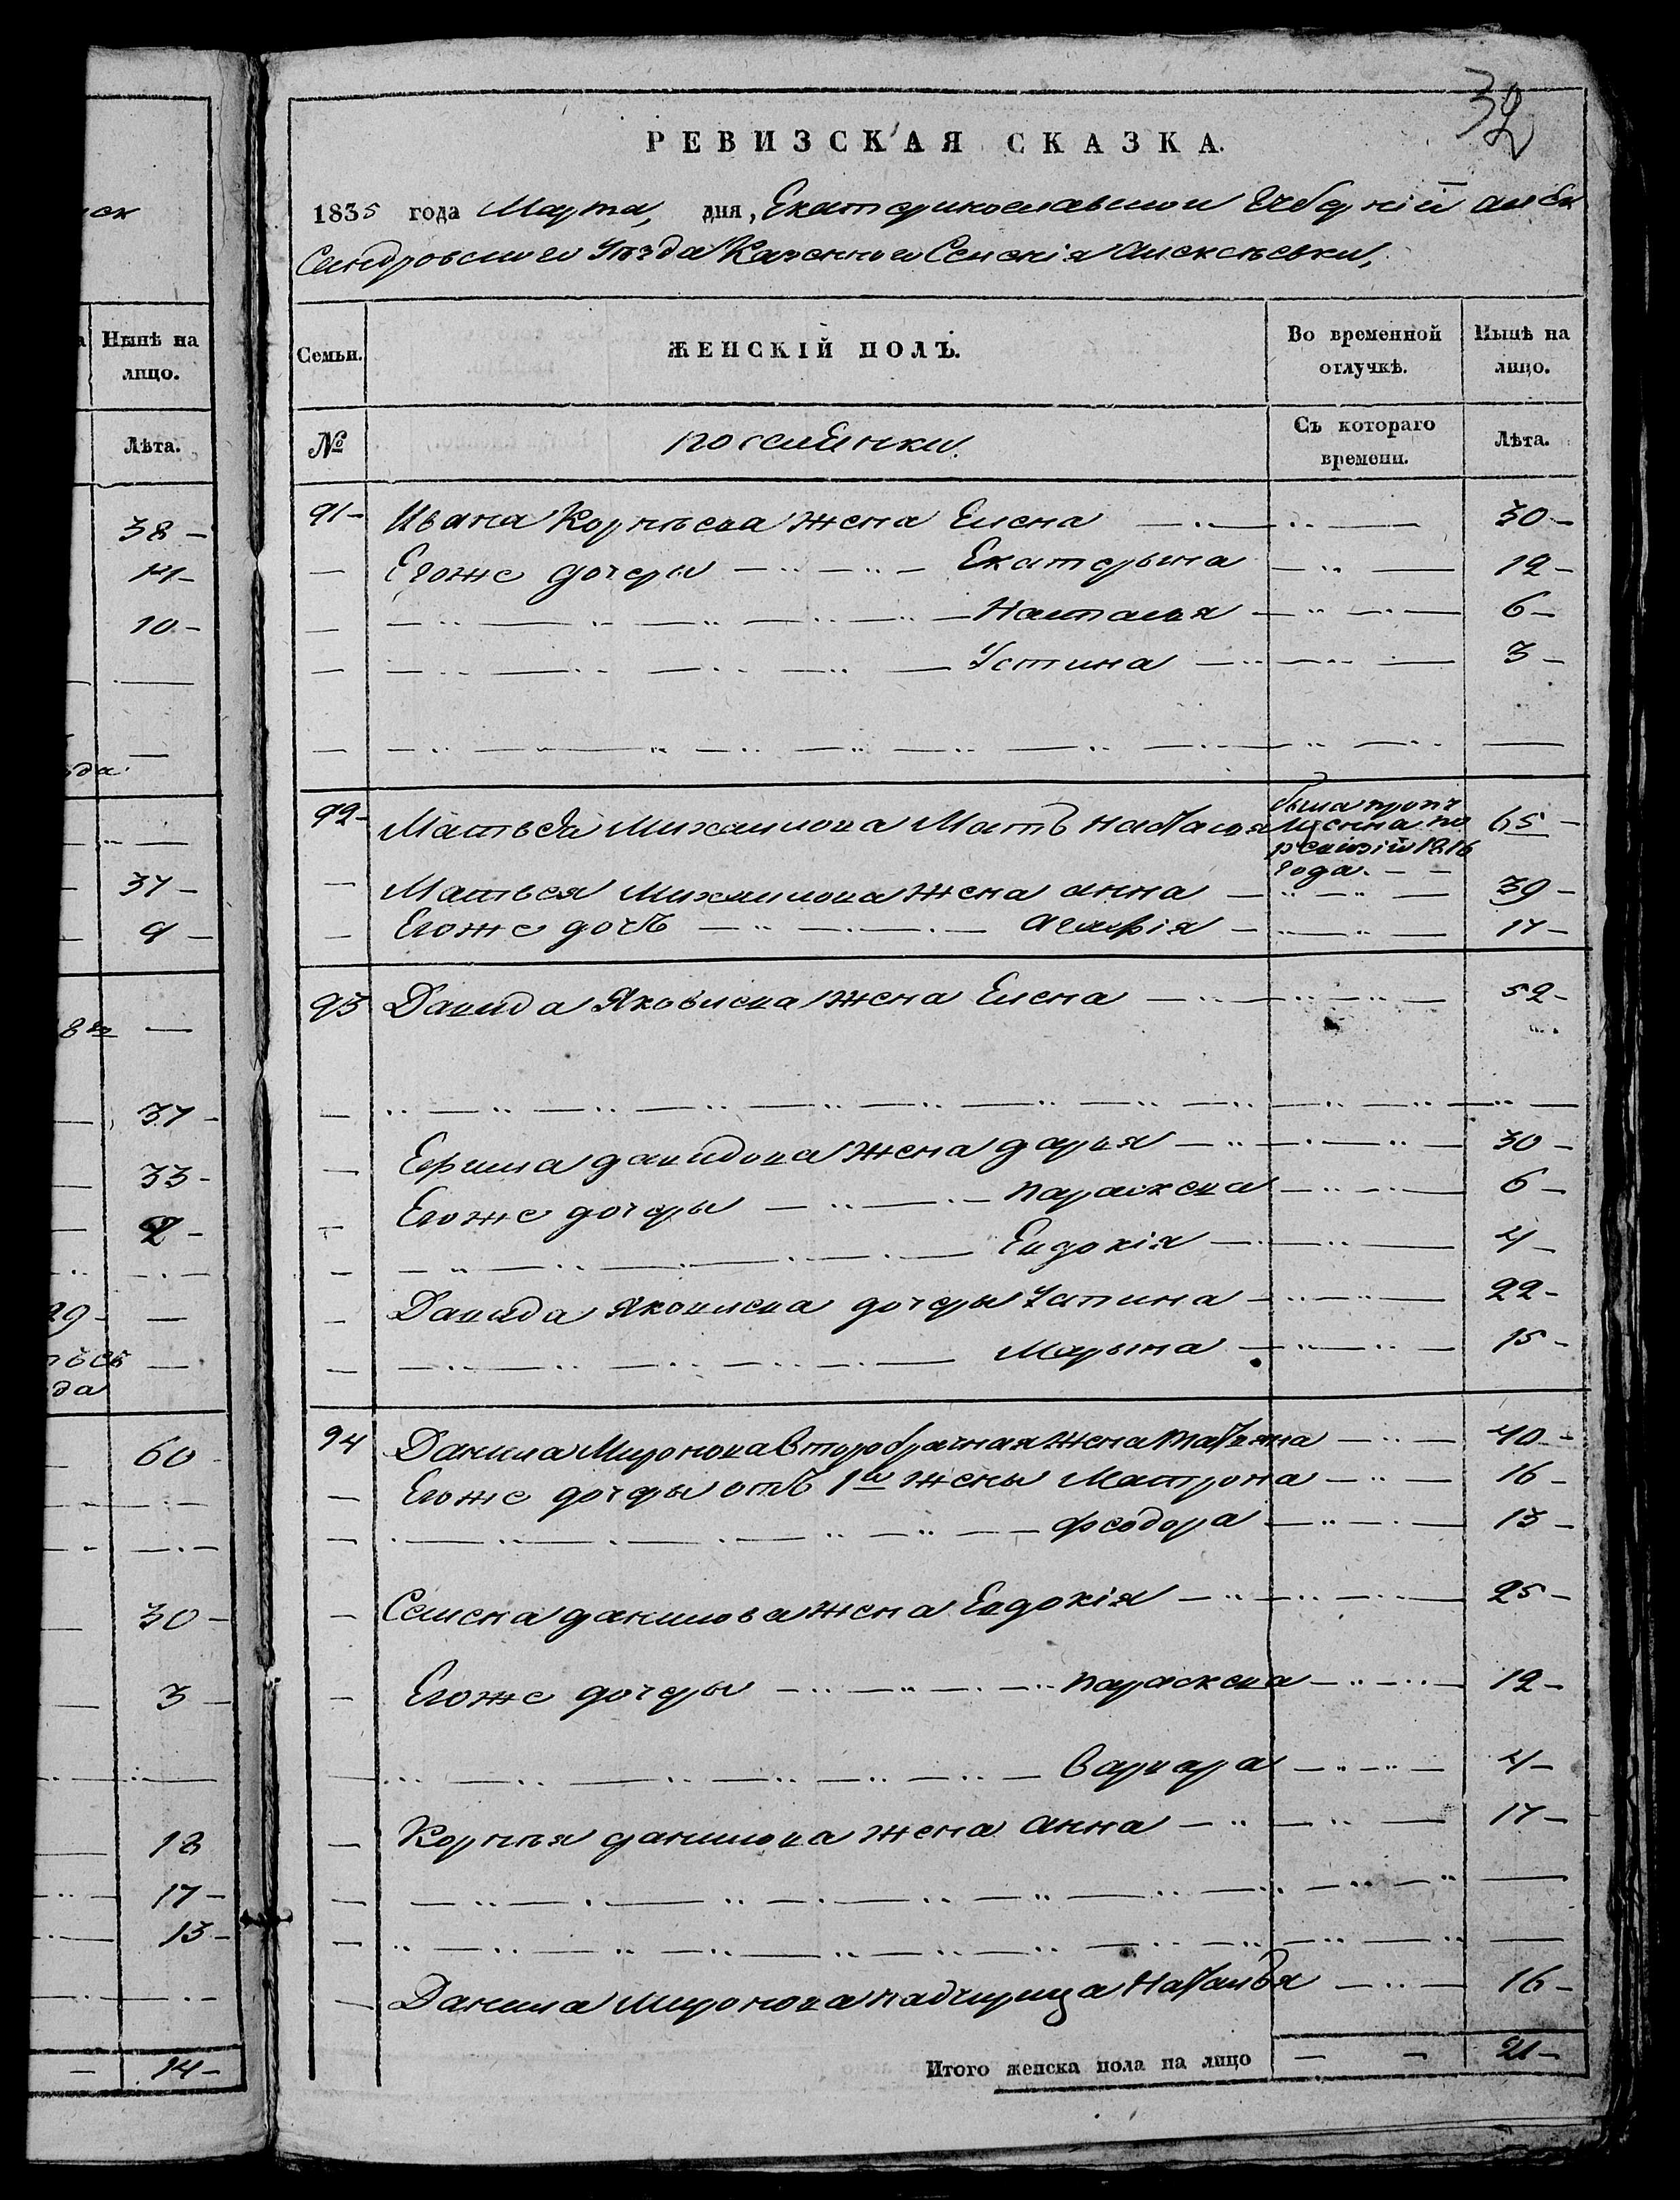 32
РЕВИЗСКАЯ СКАЗКА.
1835 года Марта, дня, Екатеринославской Губерніи алек
сандровского Уѣзда Казенного Селенія Алексѣевки,
Семьи. ЖЕНСКІЙ ПОЛЪ. Во временной отлучкѣ. Нынѣ на лицо.
№ поселенки. Съ котораго времени. Лѣта.
91 Ивана Корнѣева жена Елена 30
Егоже дочери Екатерына 12
Наталья 6
Устина 3
92 Матвея Михаилова Мать наталья была пропу 65
щенна по
ревизіи 1816
года.
Матвея Михаилова жена анна 39
Егоже дочь Агафія 17
93 Давида Яковлева жена Елена 52
Ефима давидова жена дарья 30
Егоже дочеры параскева 6
Евдокія 4
Давида Яковлева дочеры Устина 22
Марына 15
94 Данила Миронова второбрачная жена татьяна 40
Егоже дочеры отъ 1й жены Матрона 16
феодора 13
Семена данилова жена Евдокія 25
Егоже дочеры параскева 12
варвара 4
Корнѣя данилова жена анна 17
Данила Миронова падчерица Наталья 16
Итого женска пола на лицо 21
Нынѣ на
лицо.
Лѣта.
38
14
10
37
9
37
33
60
30
3
18
17
13
14